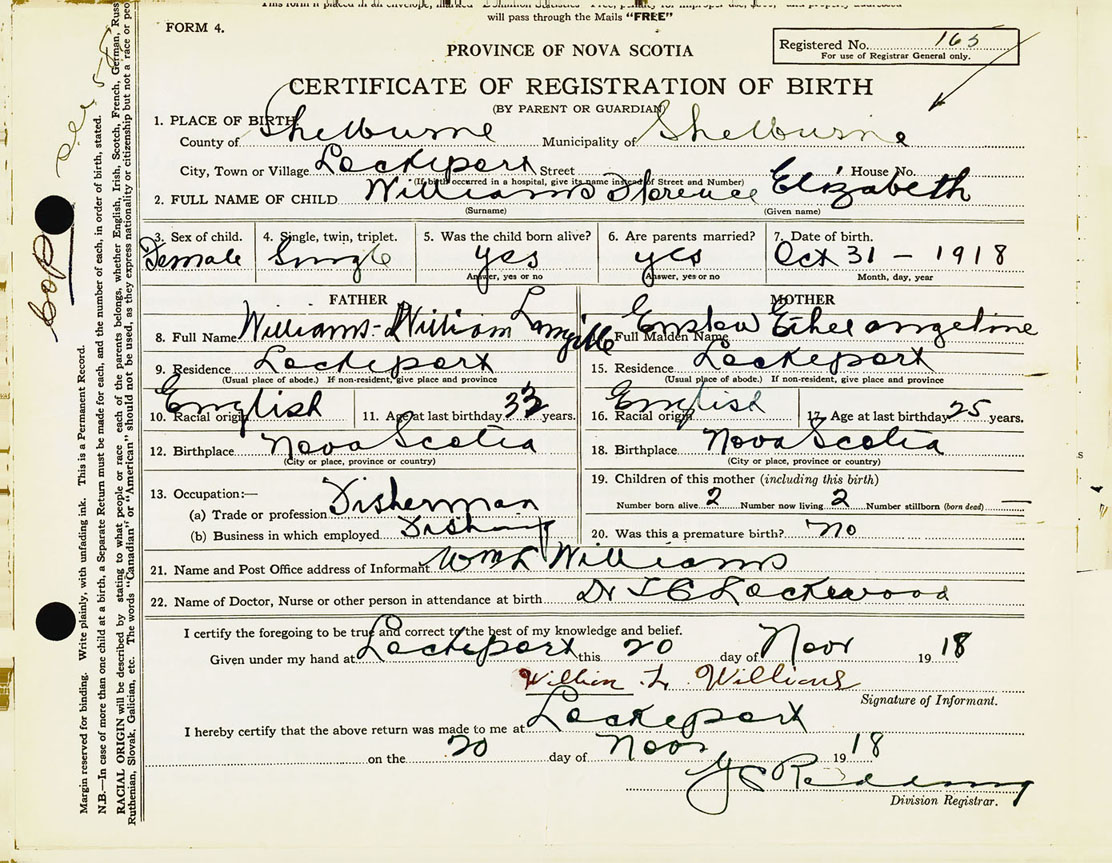 will pass through the Mails "FREE"
FORM 4.
Registered No. 165
For use of Registrar General only.
PROVINCE OF NOVA SCOTIA
CERTIFICATE OF REGISTRATION OF BIRTH
(BY PARENT OR GUARDIAN)
1. PLACE OF BIRTH:
County of Shelburne Municipality of Shelburne
City, Town or Village Lockeport Street House No.
(If birth occurred in a hospital, give its name instead of Street and Number)
2. FULL NAME OF CHILD Williams Florence Elizabeth
(Surname) (Given name)
3. Sex of child. 4. Single, twin, triplet. 5. Was the child born alive? 6. Are parents married? 7. Date of birth.
Female Single yes yes Oct 31 - 1918
Answer, yes or no Answer, yes or no Month, day, year
FATHER MOTHER
8. Full Name Williams - William Langille Full Maiden Name Ethel angeline
9. Residence Lockeport 15. Residence Lockeport
(Usual place of abode.) If non-resident, give place and province (Usual place of abode.) If non-resident, give place and province
10. Racial origin English 11. Age at last birthday years. 16. Racial origin English 17. Age at last birthday 25 years.
12. Birthplace Nova Scotia 18. Birthplace Nova Scotia
(City or place, province or country) (City or place, province or country)
13. Occupation:— 19. Children of this mother (including this birth)
(a) Trade or profession Fisherman Number born alive 2 Number now living 2 Number stillborn (born dead) —
(b) Business in which employed Fishing 20. Was this a premature birth? no
21. Name and Post Office address of Informant Wm L Williams
22. Name of Doctor, Nurse or other person in attendance at birth Dr Lockewood
I certify the foregoing to be true and correct to the best of my knowledge and belief.
Given under my hand at Lockeport this 20 day of Nov 1918
William L. Williams
Signature of Informant.
I hereby certify that the above return was made to me at Lockeport
on the 20 day of Nov 1918
Redding
Division Registrar.
Margin reserved for binding. Write plainly, with unfading ink. This is a Permanent Record.
N.B.—In case of more than one child at a birth, a Separate Return must be made for each, and the number of each, in order of birth, stated.
RACIAL ORIGIN will be described by stating to what people or race each of the parents belongs, whether English, Irish, Scotch, French, German, Russ
Ruthenian, Slovak, Galician, etc. The words "Canadian" or "American" should not be used, as they express nationality or citizenship but not a race or peo